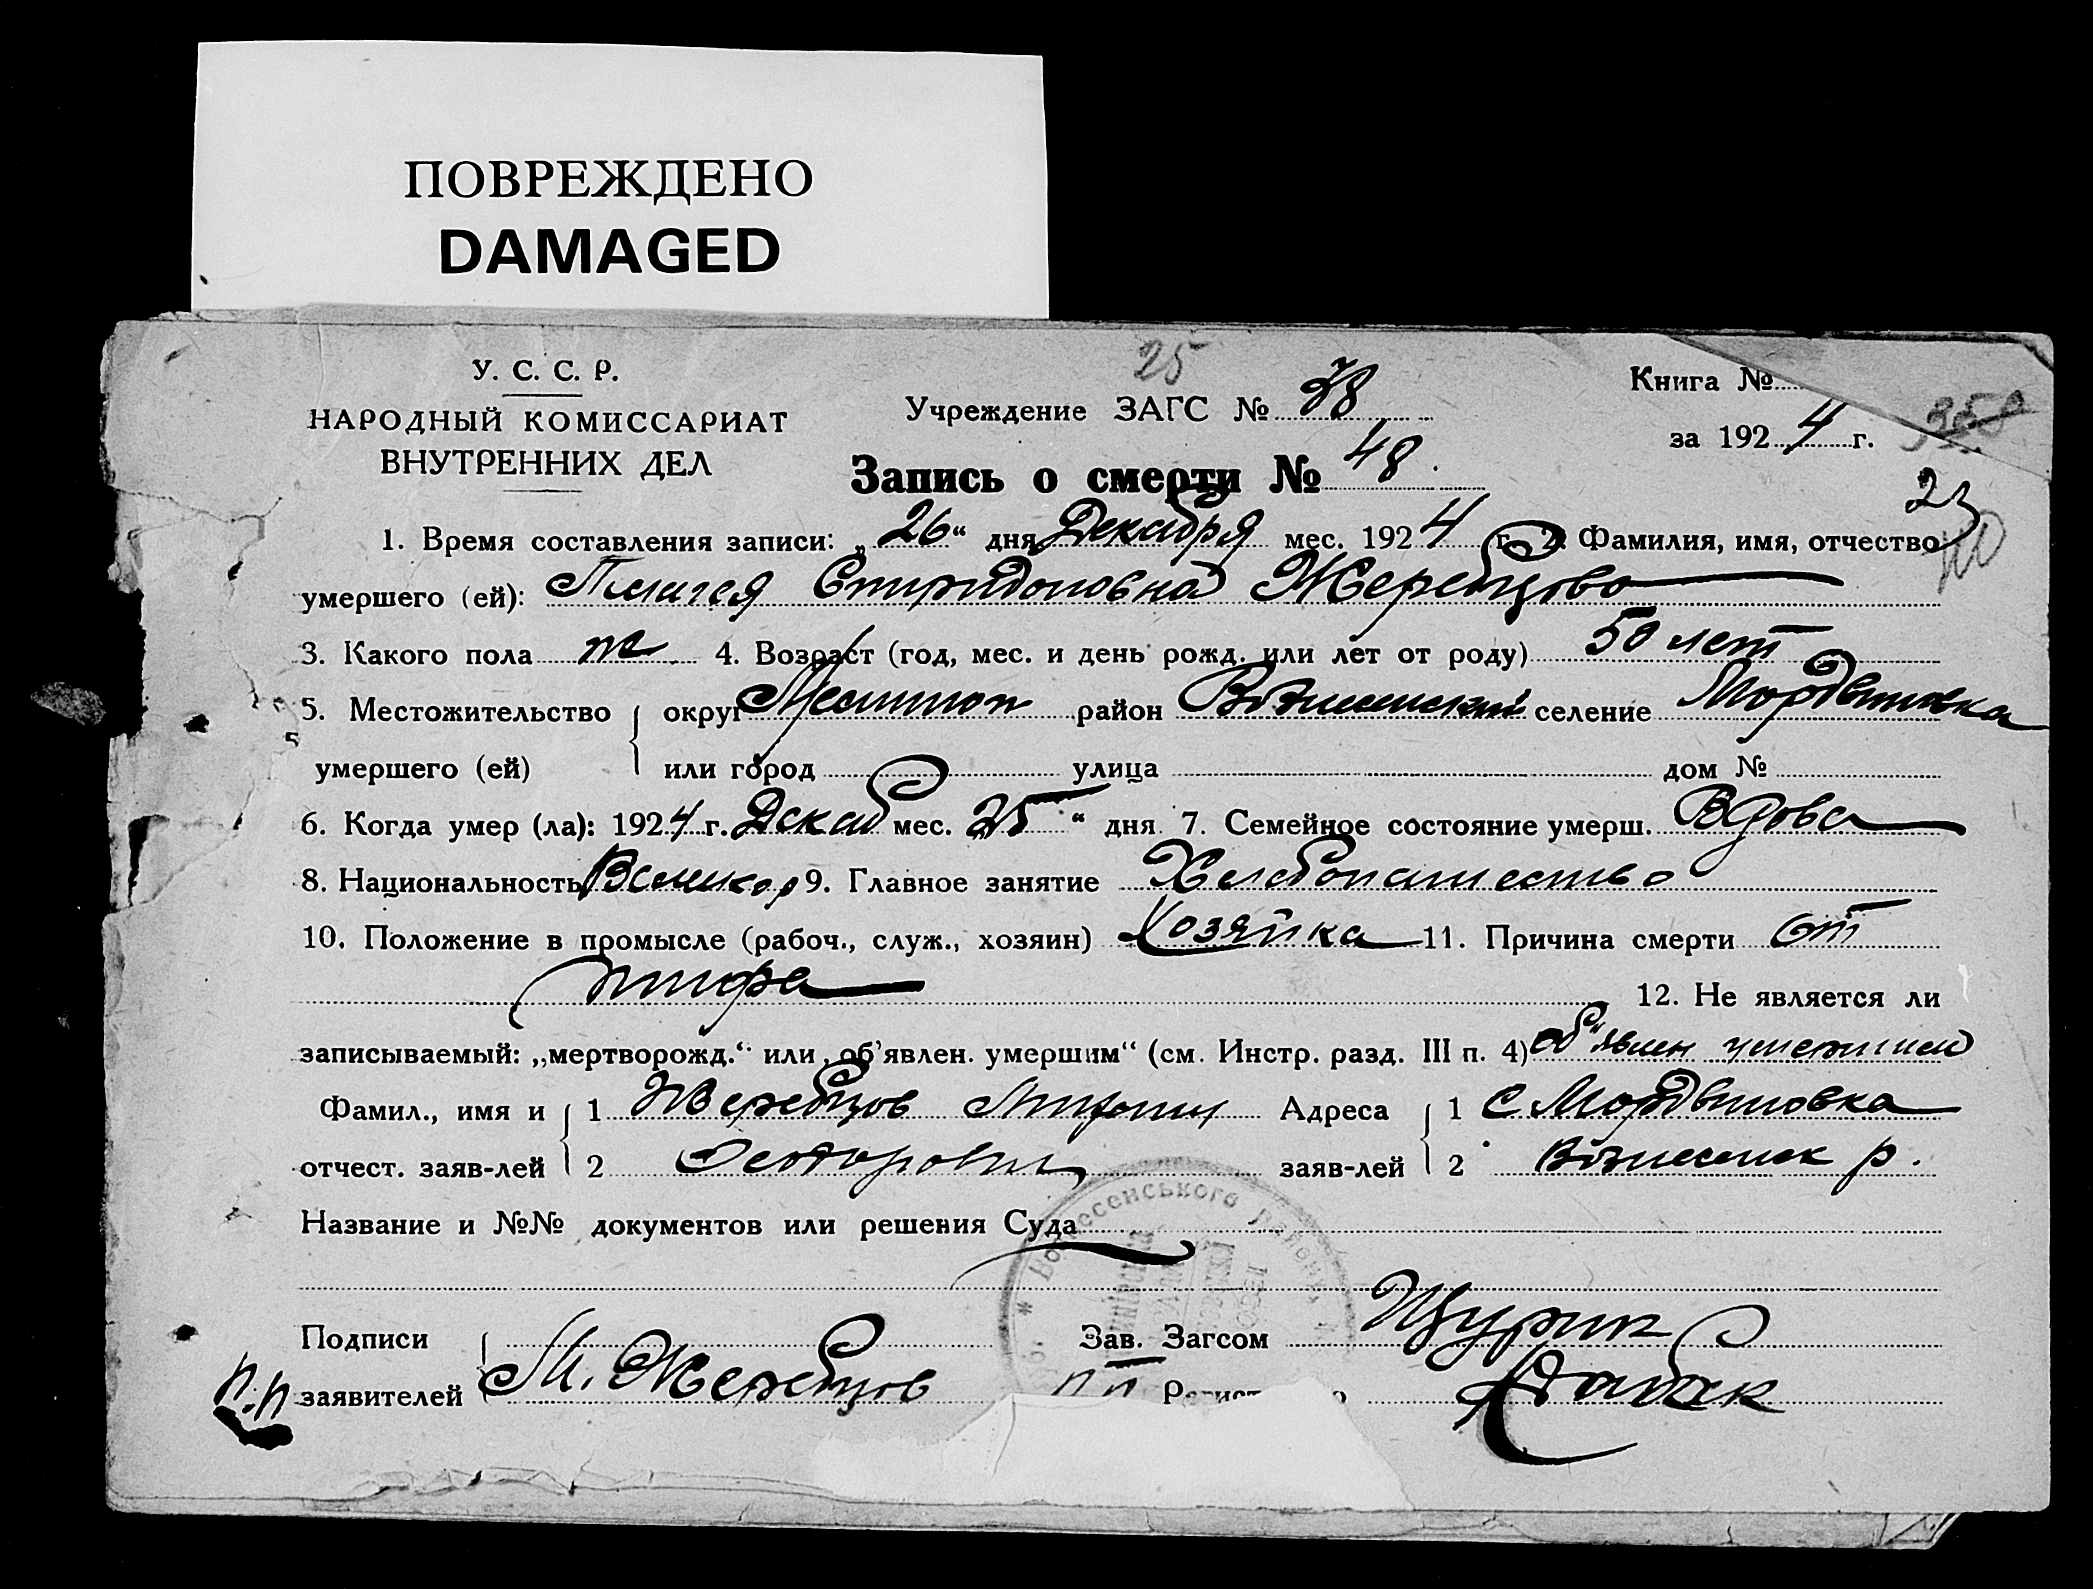 ПОВРЕЖДЕНО
DAMAGED
25
У. С. С. Р.
НАРОДНЫЙ КОМИССАРИАТ
ВНУТРЕННИХ ДЕЛ
Учреждение ЗАГС № 78
Книга №
за 1924 г.
350
Запись о смерти № 48.
23
1. Время составления записи: „26“ дня Декабря мес. 1924 г. 2. Фамилия, имя, отчество
умершего (ей): Спиридоновна Жеребцова
3. Какого пола ж 4. Возраст (год, мес. и день рожд. или лет от роду) 50 лет
5. Местожительство округ Мелитоп район Вознесенский селение Мордвиновка
умершего (ей) или город улица дом №
6. Когда умер (ла): 1924 г. Декаб мес. 25“ дня 7. Семейное состояние умерш. Вдова
8. Национальность Великор 9. Главное занятие Хлебопашество
10. Положение в промысле (рабоч., служ., хозяин) Хозяйка 11. Причина смерти от
тифа 12. Не является ли
записываемый: „мертворожд.“ или „об’явлен. умершим“ (см. Инстр. разд. III п. 4) об"явлен умершим
Фамил., имя и 1 Жеребцов Митрофан Адреса 1 С Мордвиновка
отчест. заяв-лей 2 Федорович заяв-лей 2 Вознесенск р.
Название и №№ документов или решения Суда
Вознесенського
Подписи Зав. Загсом Щурик
п.п заявителей М. Жеребцов пп